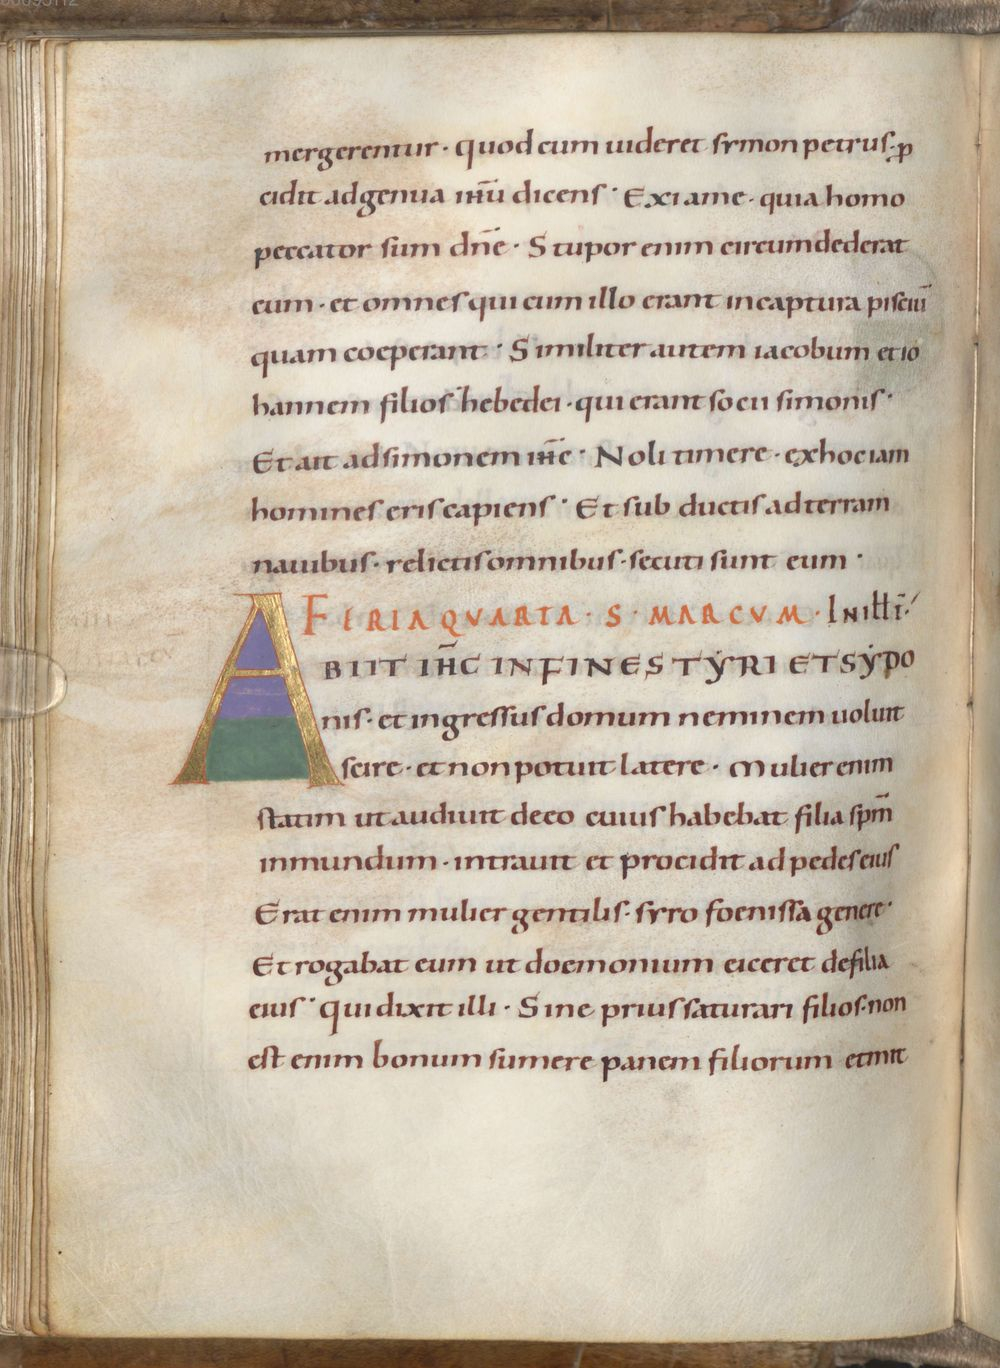 mergerentur · quod cum uideret symon petrus · p
cidit ad genua ihu dicens · Exi a me · quia homo
peccator sum dne · Stupor enim circumdederat
eum · et omnes qui cum illo erant in captura pisciu
quam coeperant · Similiter autem iacobum et io
hannem filios hebedei · qui erant socii simonis ·
Et ait ad simonem ihc · Noli timere · ex hoc iam
homines eris capiens · Et sub ductis ad terram
nauibus · relictis omnibus · secuti sunt eum ·
FERIA QVARTA · S · MARCVM · IN ILL T ·
ABIIT IHC IN FINES TYRI ET SYDO
nis · et ingressus domum neminem uoluit
scire · et non potuit latere · Mulier enim
statim ut audiuit de eo cuius habebat filia spm
inmundum · intrauit et procidit ad pedes eius
Erat enim mulier gentilis · syro foenissa genere ·
Et rogabat eum ut doemonium eiceret de filia
eius · qui dixit illi · Sine prius saturari filios · non
est enim bonum sumere panem filiorum et mit